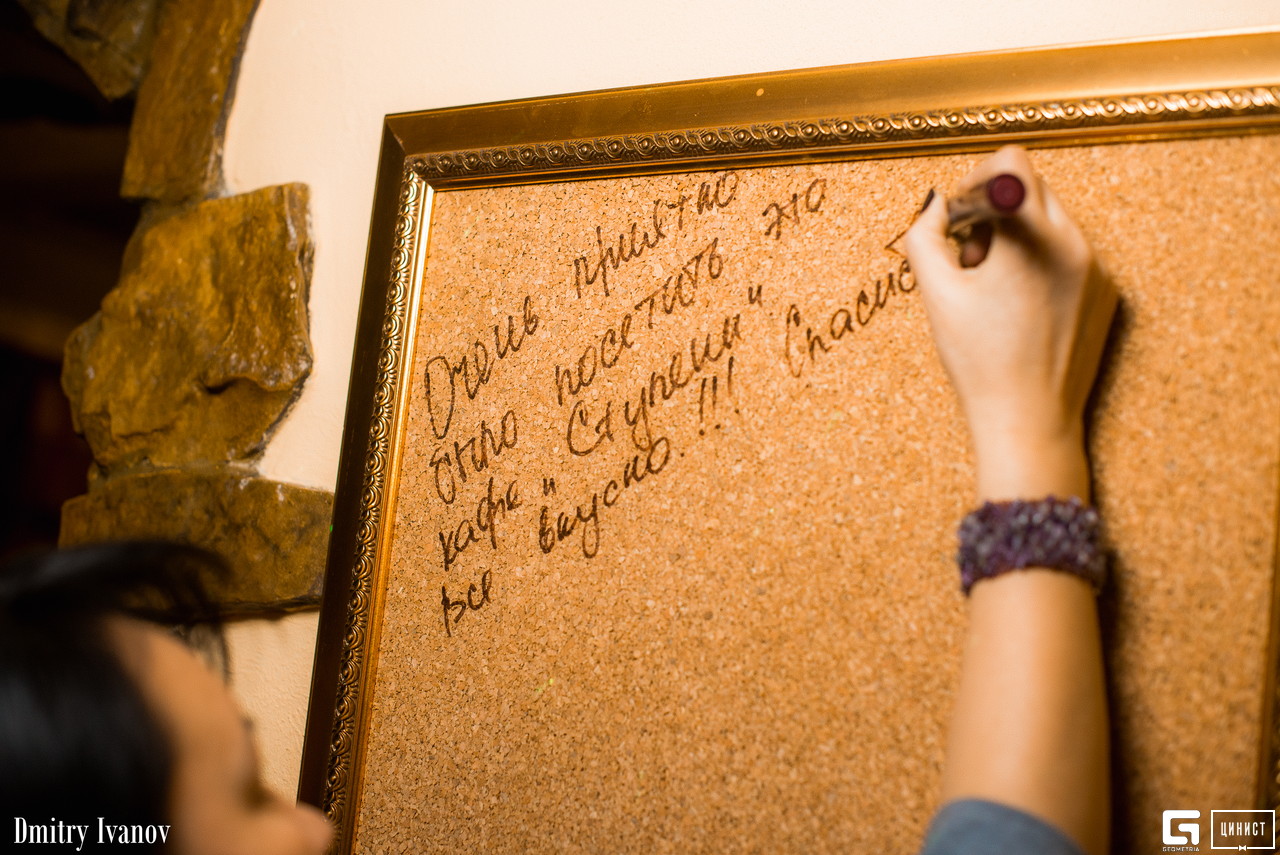 Очень приятно
было посетить это
кафе "Ступени" Спасибо
все вкусно.!!!
Dmitry Ivanov
G
GEOMETRIA
ЦИНИСТ